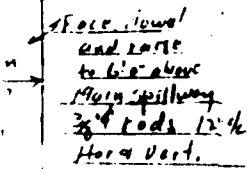 Face dowel
and raise
to 6'0 above
Main spillway
3/8"φ rods 12 c/c
Hor & Vert.